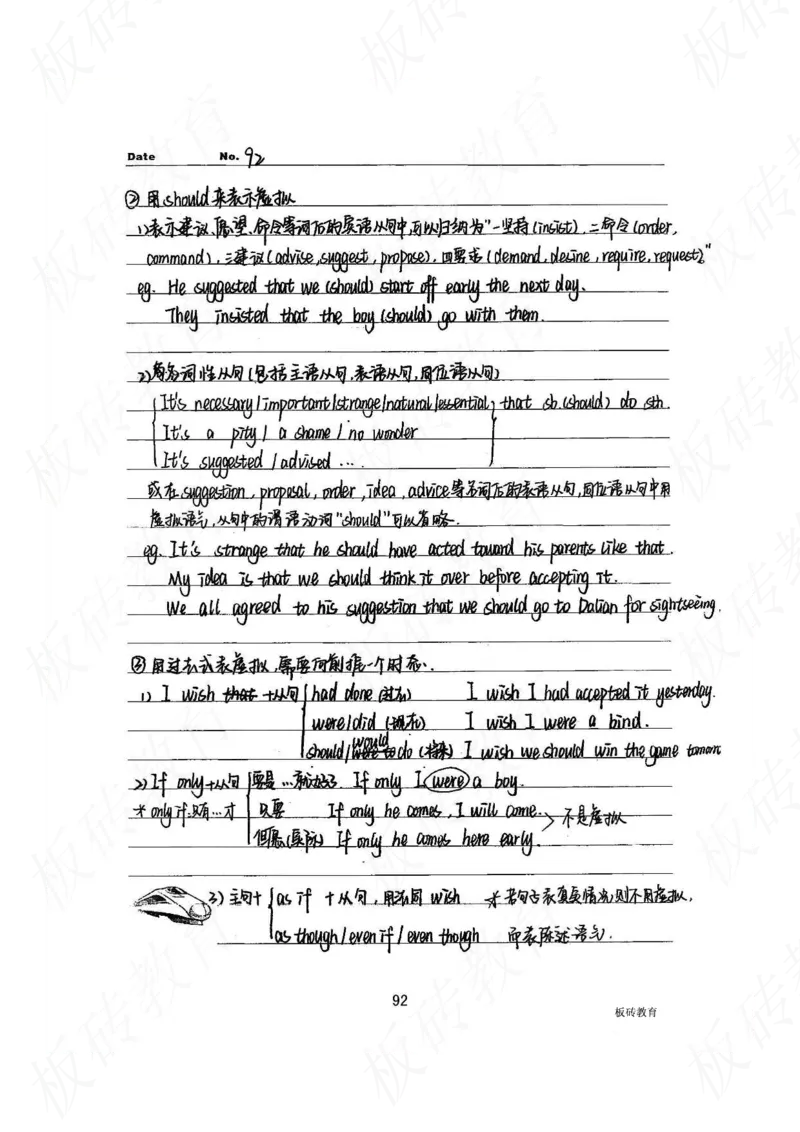 Date No. 92
② 用should来表示虚拟
1)表示建议、愿望、命令等词后的宾语从句中,可以归纳为"一坚持(insist), 二命令(order,
command), 三建议(advise, suggest, propose), 四要求(demand, desire, require, request)."
eg. He suggested that we (should) start off early the next day.
They insisted that the boy (should) go with them.
2)名词性从句(包括主语从句,表语从句,同位语从句)
It's necessary/important/strange/natural/essential, that sb.(should) do sth.
It's a pity/ a shame / no wonder
It's suggested / advised ...
或在suggestion, proposal, order, idea, advice等名词后的表语从句,同位语从句中用
虚拟语气,从句中的谓语动词"should"可以省略.
eg. It's strange that he should have acted toward his parents like that.
My idea is that we should think it over before accepting it.
We all agreed to his suggestion that we should go to Dalian for sightseeing.
③ 用过去式表虚拟,需要向前推一个时态.
1) I wish that +从句 had done (过去) I wish I had accepted it yesterday.
were/did (现在) I wish I were a bird.
should/would do (将来) I wish we should win the game
2) If only+从句 要是...就好了. If only I were a boy.
* only if:只有...才 只要 If only he comes, I will come. > 不是虚拟
但愿(实际) If only he comes here early.
3) 主句+ as if +从句, 用法同 wish * 若句子表真实情况,则不用虚拟,
as though/even if/ even though 即表陈述语气.
92
板砖教育